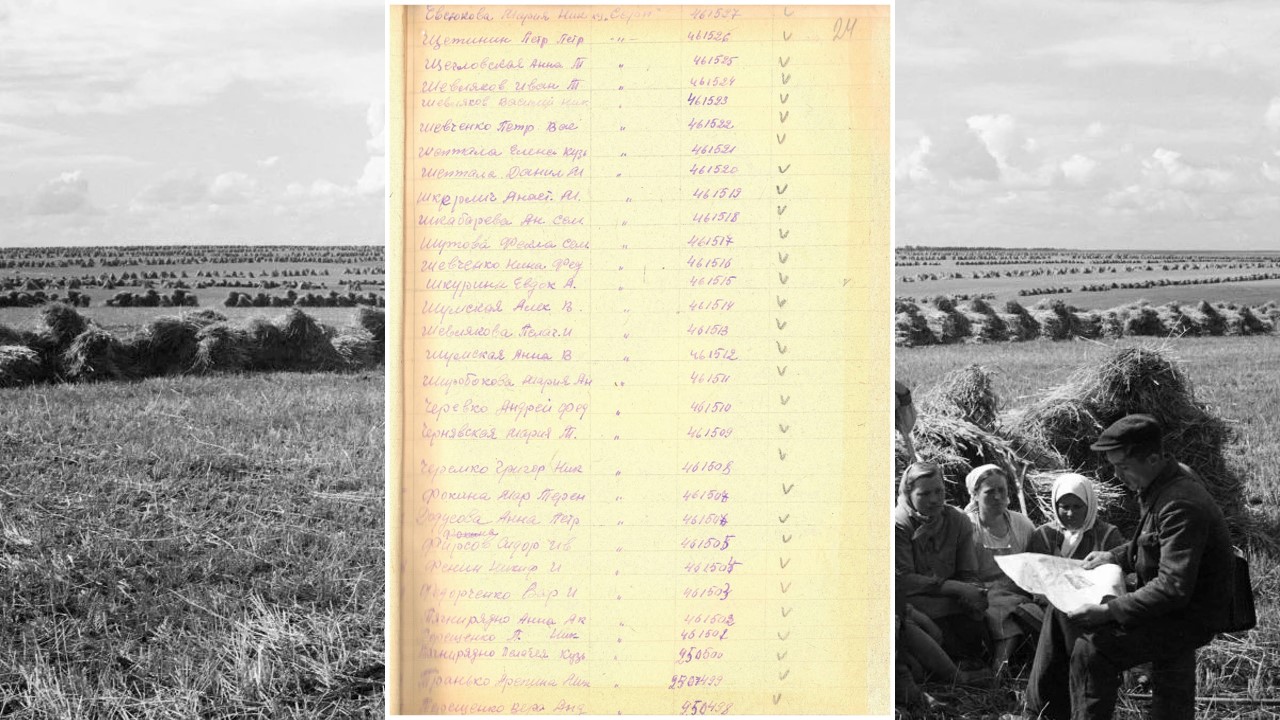 Евсюкова Мария Ник кз "Серп" 461527 v
24
Щетинин Петр Петр -"- 461526 v
Щегловская Анна Т " 461525 v
Шевляков Иван Т " 461524 v
Шевляков Василий Ник 461523
Шевченко Петр Вас " 461522 v
Шептала Елена Кузь " 461521 v
Шептала Данил М " 461520 v
Анаст. М. " 461519 v
Шкабарева Ан Сем " 461518 v
Шутова Фекла Сем " 461517 v
Шевченко Нина Фед " 461516 v
Шкурина Евдок А. " 461515 v v
Шумская Алек В. " 461514 v
Шевлякова Пелаг И " 461513 v
Шумская Анна В " 461512 v
Мария Ан " 461511 v
Черевко Андрей Фед " 461510 v
Чернявская Мария Т. " 461509 v
Черемко Григор Ник " 461508 v
Фокина Мар Терен " 461507 v
Анна Петр " 461506 v
Фирсов Сидор Ив " 461505 v
Фенин Никиф И " 461504 v
Вар И " 461503 v
Анна Ак " 461502 v
П. Ник " 461501 v
Пелагея Кузь " 450500 v
Транько Арепина " 450499 v
Терещенко Вера Анд " 450498 v